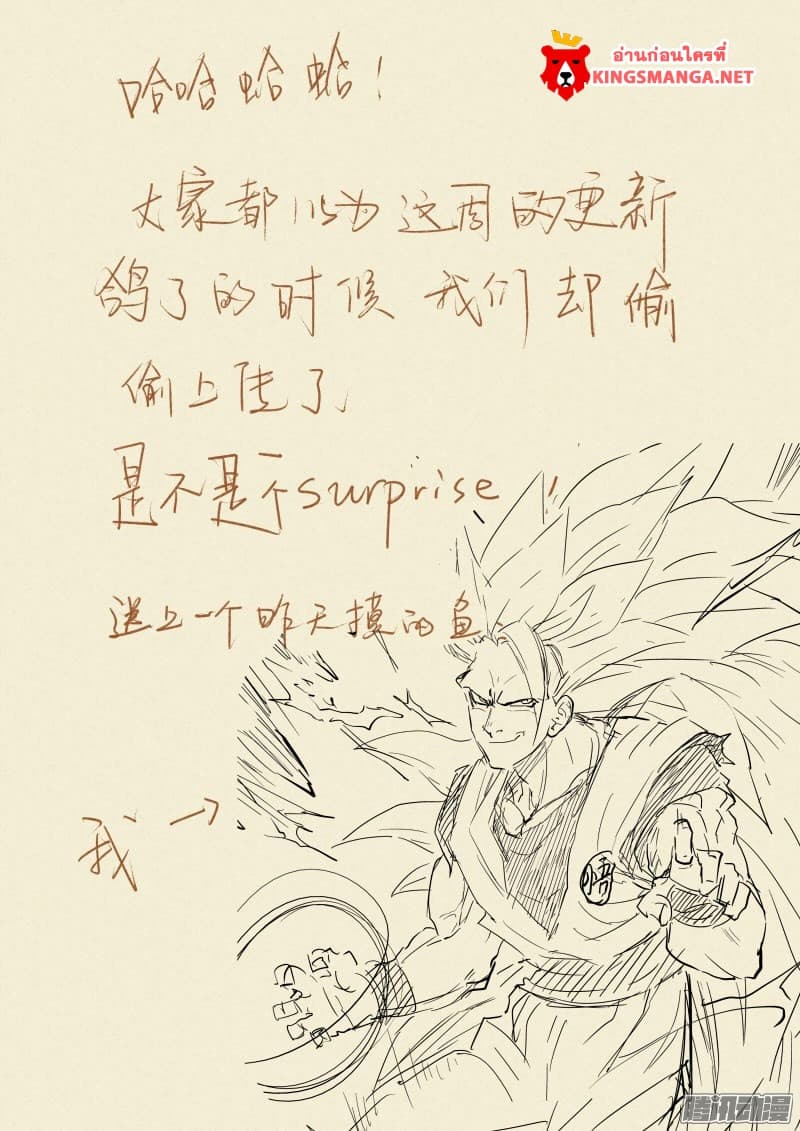 อ่านก่อนใครที่
KINGSMANGA.NET
哈哈蛤蛤！
大家都以为这周的更新
鸽了的时候 我们却偷
偷上传了
是不是个surprise！
送上一个昨天摸的鱼.
我→
悟
腾讯动漫